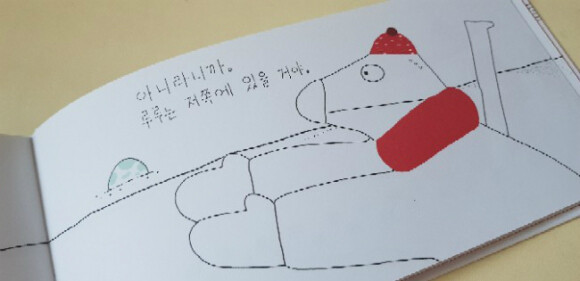 아니라니까.
루루는 저쪽에 있을 거야.